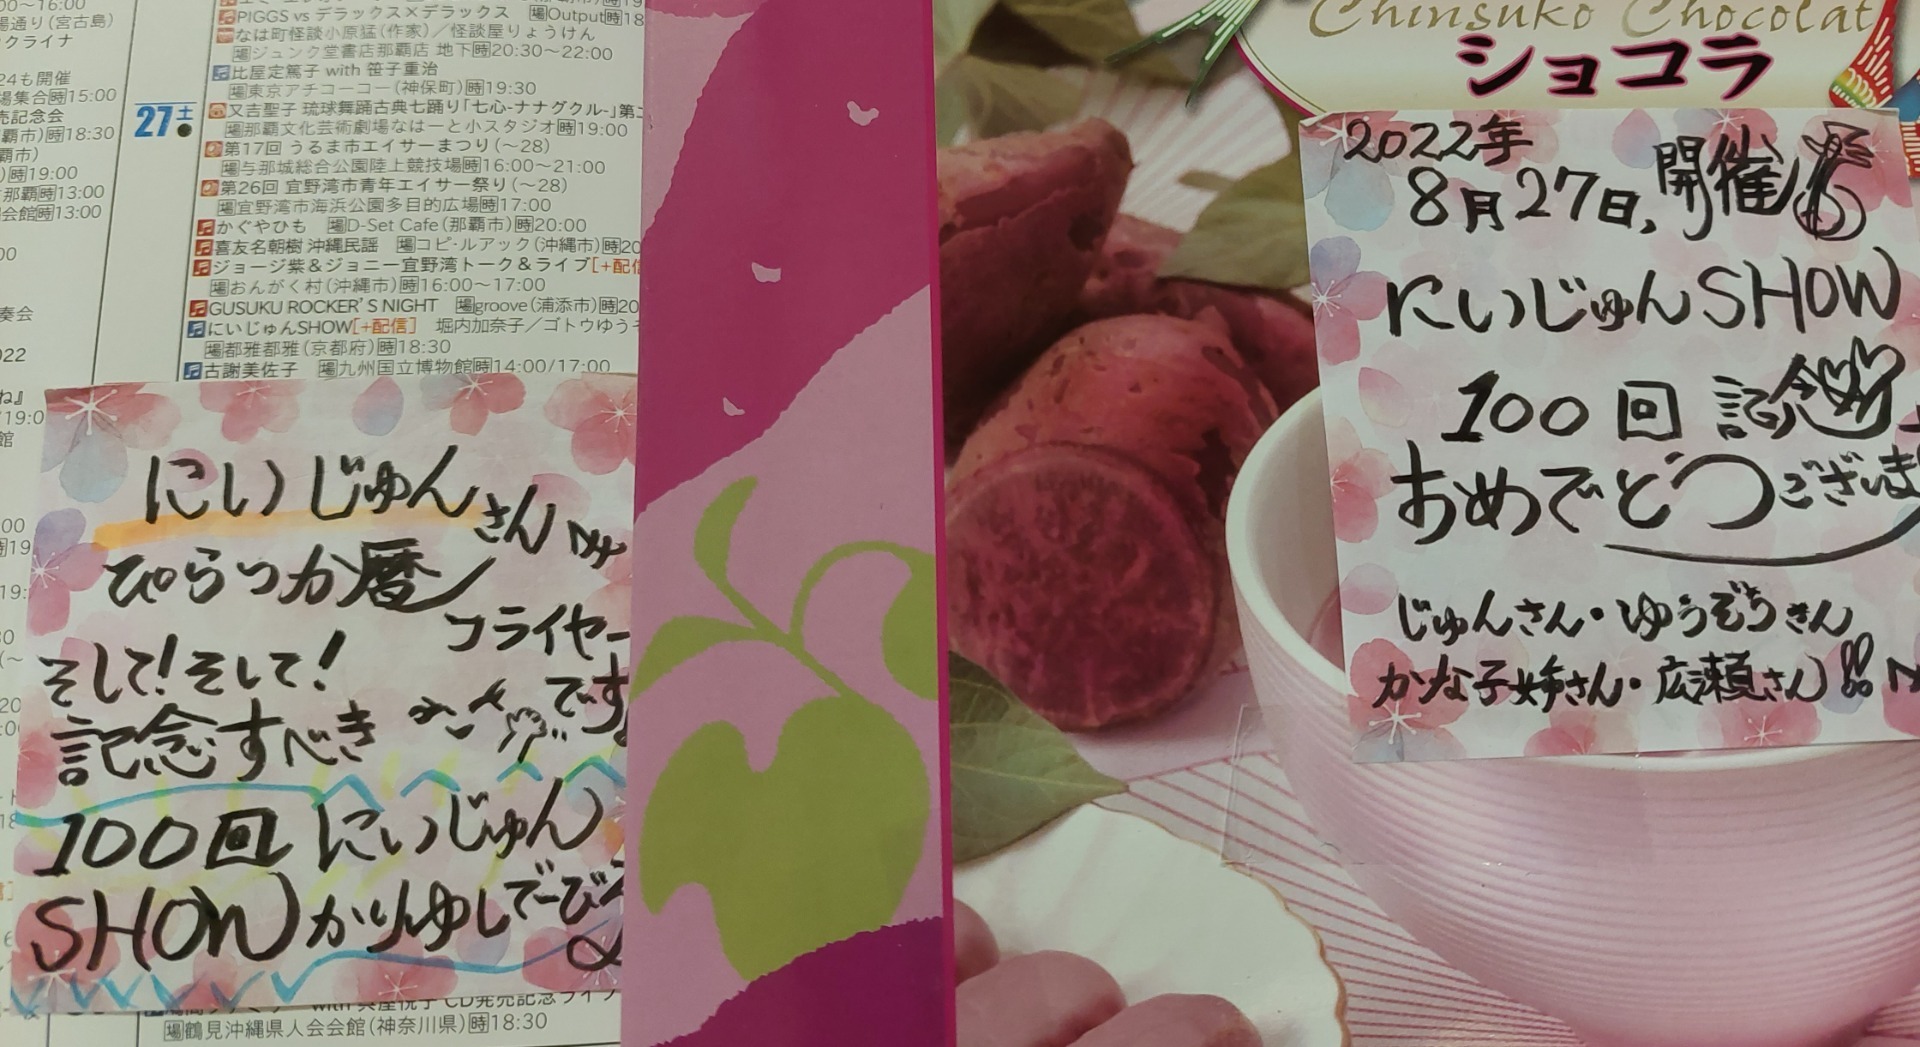 00〜16:00
場通り(宮古島)
クライナ
24も開催
場集合時15:00
売記念会
覇市)時18:30
覇市)
)時19:00
那覇時13:00
会館時13:00
奏会
022
27土
PIGGS vs デラックス×デラックス 場Output時18
なは町怪談小原猛(作家)/怪談屋りょうけん
場ジュンク堂書店那覇店 地下時20:30〜22:00
比屋定篤子 with 笹子重治
場東京アチコーコー(神保町)時19:30
又吉聖子 琉球舞踊古典七踊り「七心-ナナグクル-」第
場那覇文化芸術劇場なはーと小スタジオ時19:00
第17回 うるま市エイサーまつり(〜28)
場与那城総合公園陸上競技場時16:00〜21:00
第26回 宜野湾市青年エイサー祭り(〜28)
場宜野湾市海浜公園多目的広場時17:00
かぐやひも 場D-Set Cafe(那覇市)時20:00
喜友名朝樹 沖縄民謡 場コピ・ルアック(沖縄市)時20
ジョージ紫&ジョニー宜野湾トーク&ライブ[+配信
場おんがく村(沖縄市)時16:00〜17:00
GUSUKU ROCKER'S NIGHT 場groove(浦添市)時20
にいじゅんSHOW[+配信] 堀内加奈子/ゴトウゆうぞ
場都雅都雅(京都府)時18:30
古謝美佐子 場九州国立博物館時14:00/17:00
にいじゅんさん
ぴらつか暦
フライヤー
そして!そして!
です
記念すべき
100回 にいじゅん
SHOW かりゆしでーびる
CD発売記念ライブ
場鶴見沖縄県人会会館(神奈川県)時18:30
Chinsuko Chocolat
ショコラ
2022年
8月27日,開催
にいじゅんSHOW
100回 記念
おめでとうございま
じゅんさん・ゆうぞうさん
かな子姉さん・広瀬さん!!